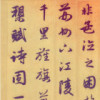 非孟德之困
荆州下江陵
千里旌旗
槊賦詩固一